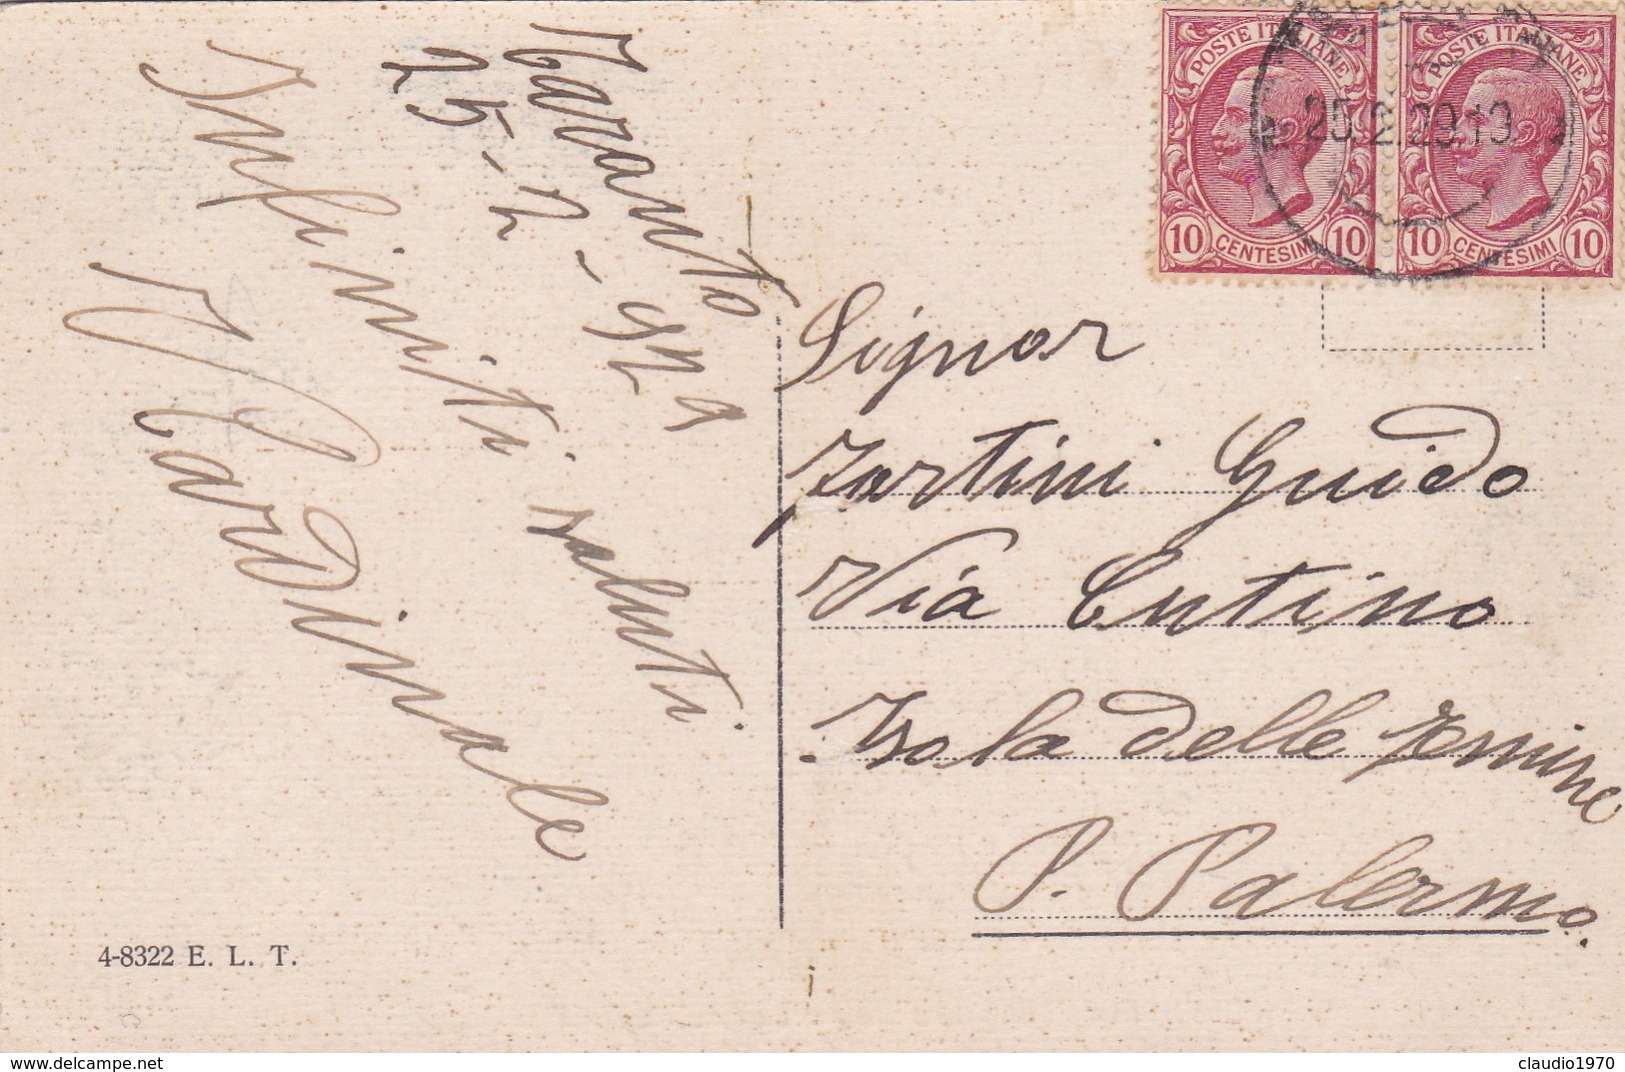 Taranto
25-2-929
Infiniti saluti
Cardinale
POSTE ITALIANE
10 CENTESIMI 10
POSTE ITALIANE
10 CENTESIMI 10
25.2.29.19
Signor
Zartini Guido
Via Cutino
Isola delle Femmine
P. Palermo.
4-8322 E. L. T.
delcampe.net
claudio1970